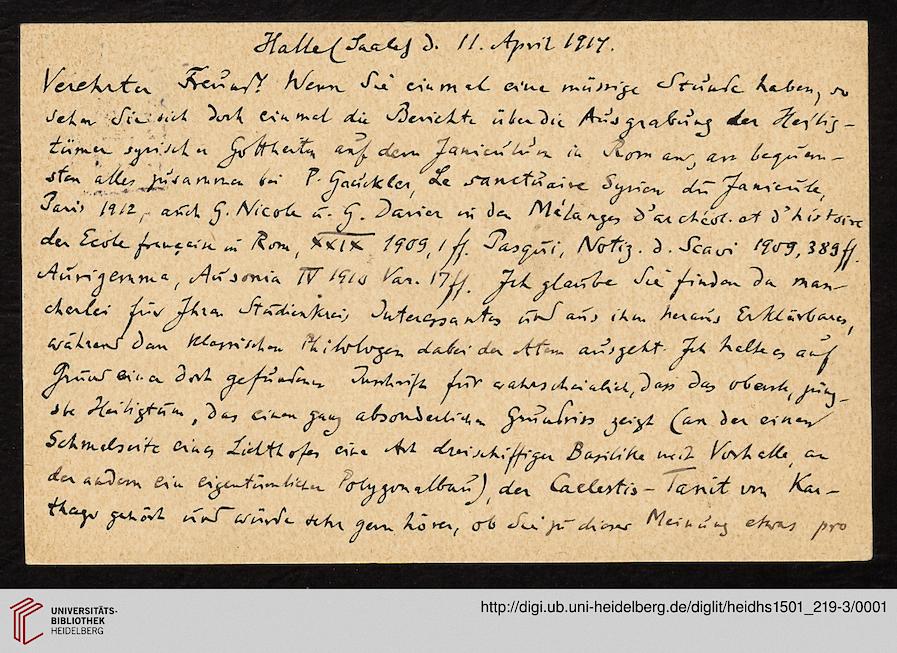 Halle (Saale) d. 11. April 1917.
Verehrter Freund! Wenn Sie einmal eine müssige Stunde haben, so
sehn Sie sich doch einmal die Berichte über die Ausgrabung der Heilig-
tümer syrischer Gottheiten auf dem Janiculum in Rom an, am bequem-
sten alles zusammen bei P. Gauckler, Le sanctuaire Syrien du Janicule,
Paris 1912, auch G. Nicole u. G. Darier in den Mélanges d'archéol. et d'histoire
der Ecole française in Rom, XXIX 1909, 1 ff. Pasqui, Notiz. d. Scavi 1909, 389 ff.
Aurigemma, Ausonia IV 1910 Var. 17 ff. Ich glaube Sie finden da man-
cherlei für Ihren Studienkreis Interessantes und aus ihm heraus Erklärbares,
während dem klassischen Philologen dabei der Atem ausgeht. Ich halte es auf
Grund einer dort gefundenen Inschrift für wahrscheinlich, dass das oberste, jüng-
ste Heiligtum, das einen ganz absonderlichen Grundriss zeigt (an der einen
Schmalseite eines Lichthofes eine Art dreischiffiger Basilika mit Vorhalle, an
der andern ein eigentümlicher Polygonalbau), der Caelestis-Tanit von Kar-
thago gehört und würde sehr gern hören, ob Sie zu dieser Meinung etwas pro
UNIVERSITÄTS-
BIBLIOTHEK
HEIDELBERG
http://digi.ub.uni-heidelberg.de/diglit/heidhs1501_219-3/0001